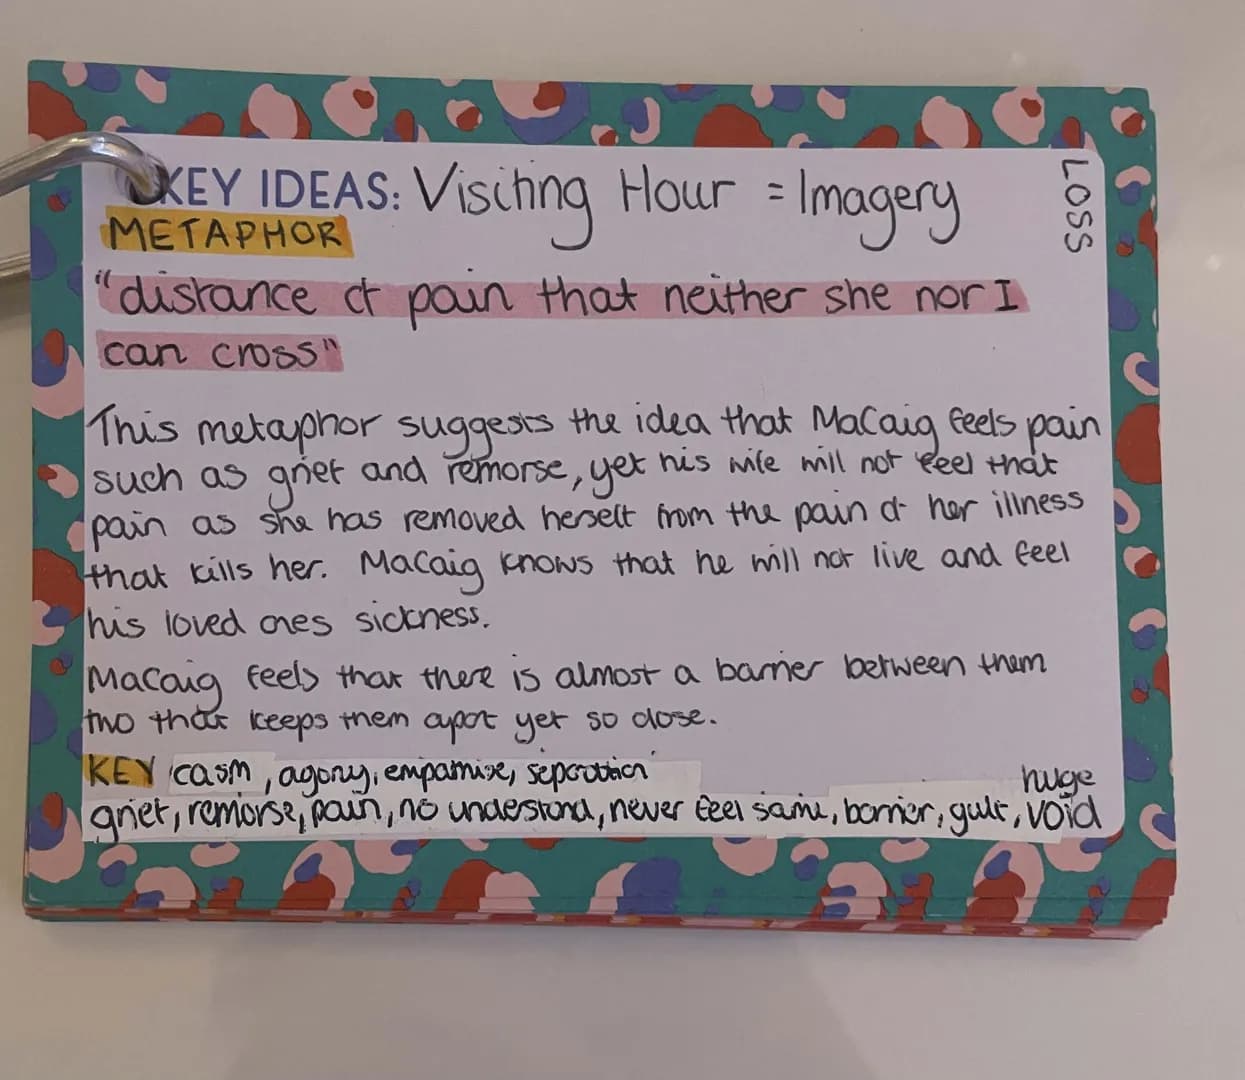 KEY IDEAS: Visiting Hour = Imagery
LOSS
METAPHOR
"distance of pain that neither she nor I
can cross"
This metaphor suggests the idea that MaCaig feels pain
such as grief and remorse, yet his wife will not feel that
pain as she has removed herself from the pain of her illness
that kills her. MaCaig knows that he will not live and feel
his loved ones sickness.
MaCaig feels that there is almost a barrier between them
two that keeps them apart yet so close.
KEY casm, agony, empamise, separation
huge
grief, remorse, pain, no understand, never feel same, barrier, gult, void